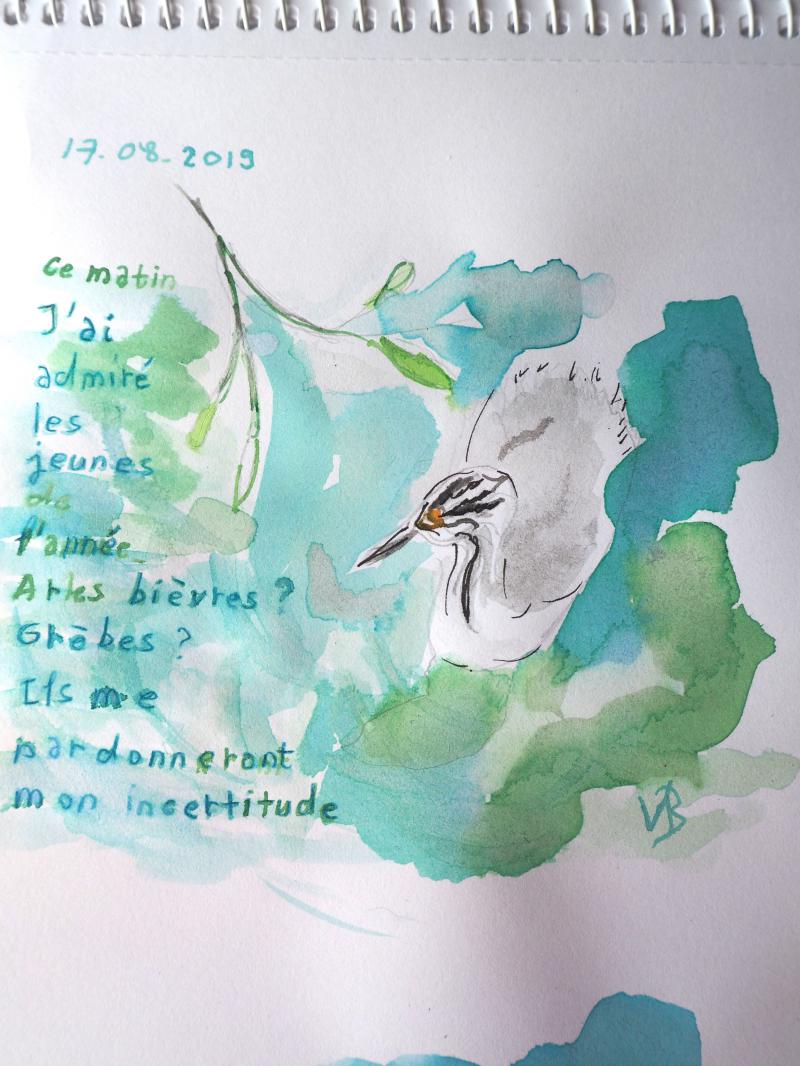 17.08.2019
Ce matin
J'ai
admiré
les
jeunes
de
l'année
Arles bièvres ?
Grèbes ?
Ils me
pardonneront
mon incertitude
VB